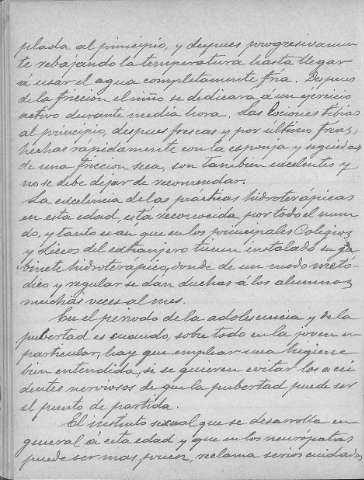 plada al principio, y despues progresivamen-
te rebajando la temperatura hasta llegar
á usar el agua completamente fria. Despues
de la friccion el niño se dedicará á un ejercicio
activo durante media hora. Las lociones tibias
al principio, despues frescas y por último frias,
hechas rápidamente con la esponja y seguidas
de una friccion seca, son tambien excelentes y
no se debe dejar de recomendar.
La excelencia de las practicas hidroterápicas
en esta edad, está reconocida por todo el mun-
do, y tanto es asi que en los principales Colegios
y Liceos del extranjero tienen instalado su ga-
binete hidroterápico, donde de un modo metó-
dico y regular se dan duchas á los alumnos
muchas veces al mes.
En el periodo de la adolescencia y de la
pubertad es cuando, sobre todo en la joven en
particular, hay que emplear una higiene
bien entendida, si se quieren evitar los acci-
dentes nerviosos de que la pubertad puede ser
el punto de partida.
El instinto sexual que se desarrolla en
general á esta edad y que en los neuropatas
puede ser mas precoz, reclama serios cuidados